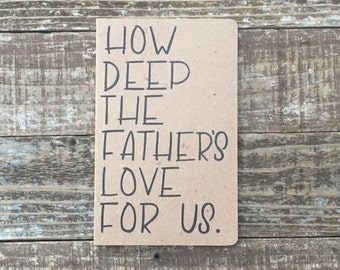 HOW
DEEP
THE
FATHER'S
LOVE
FOR US.